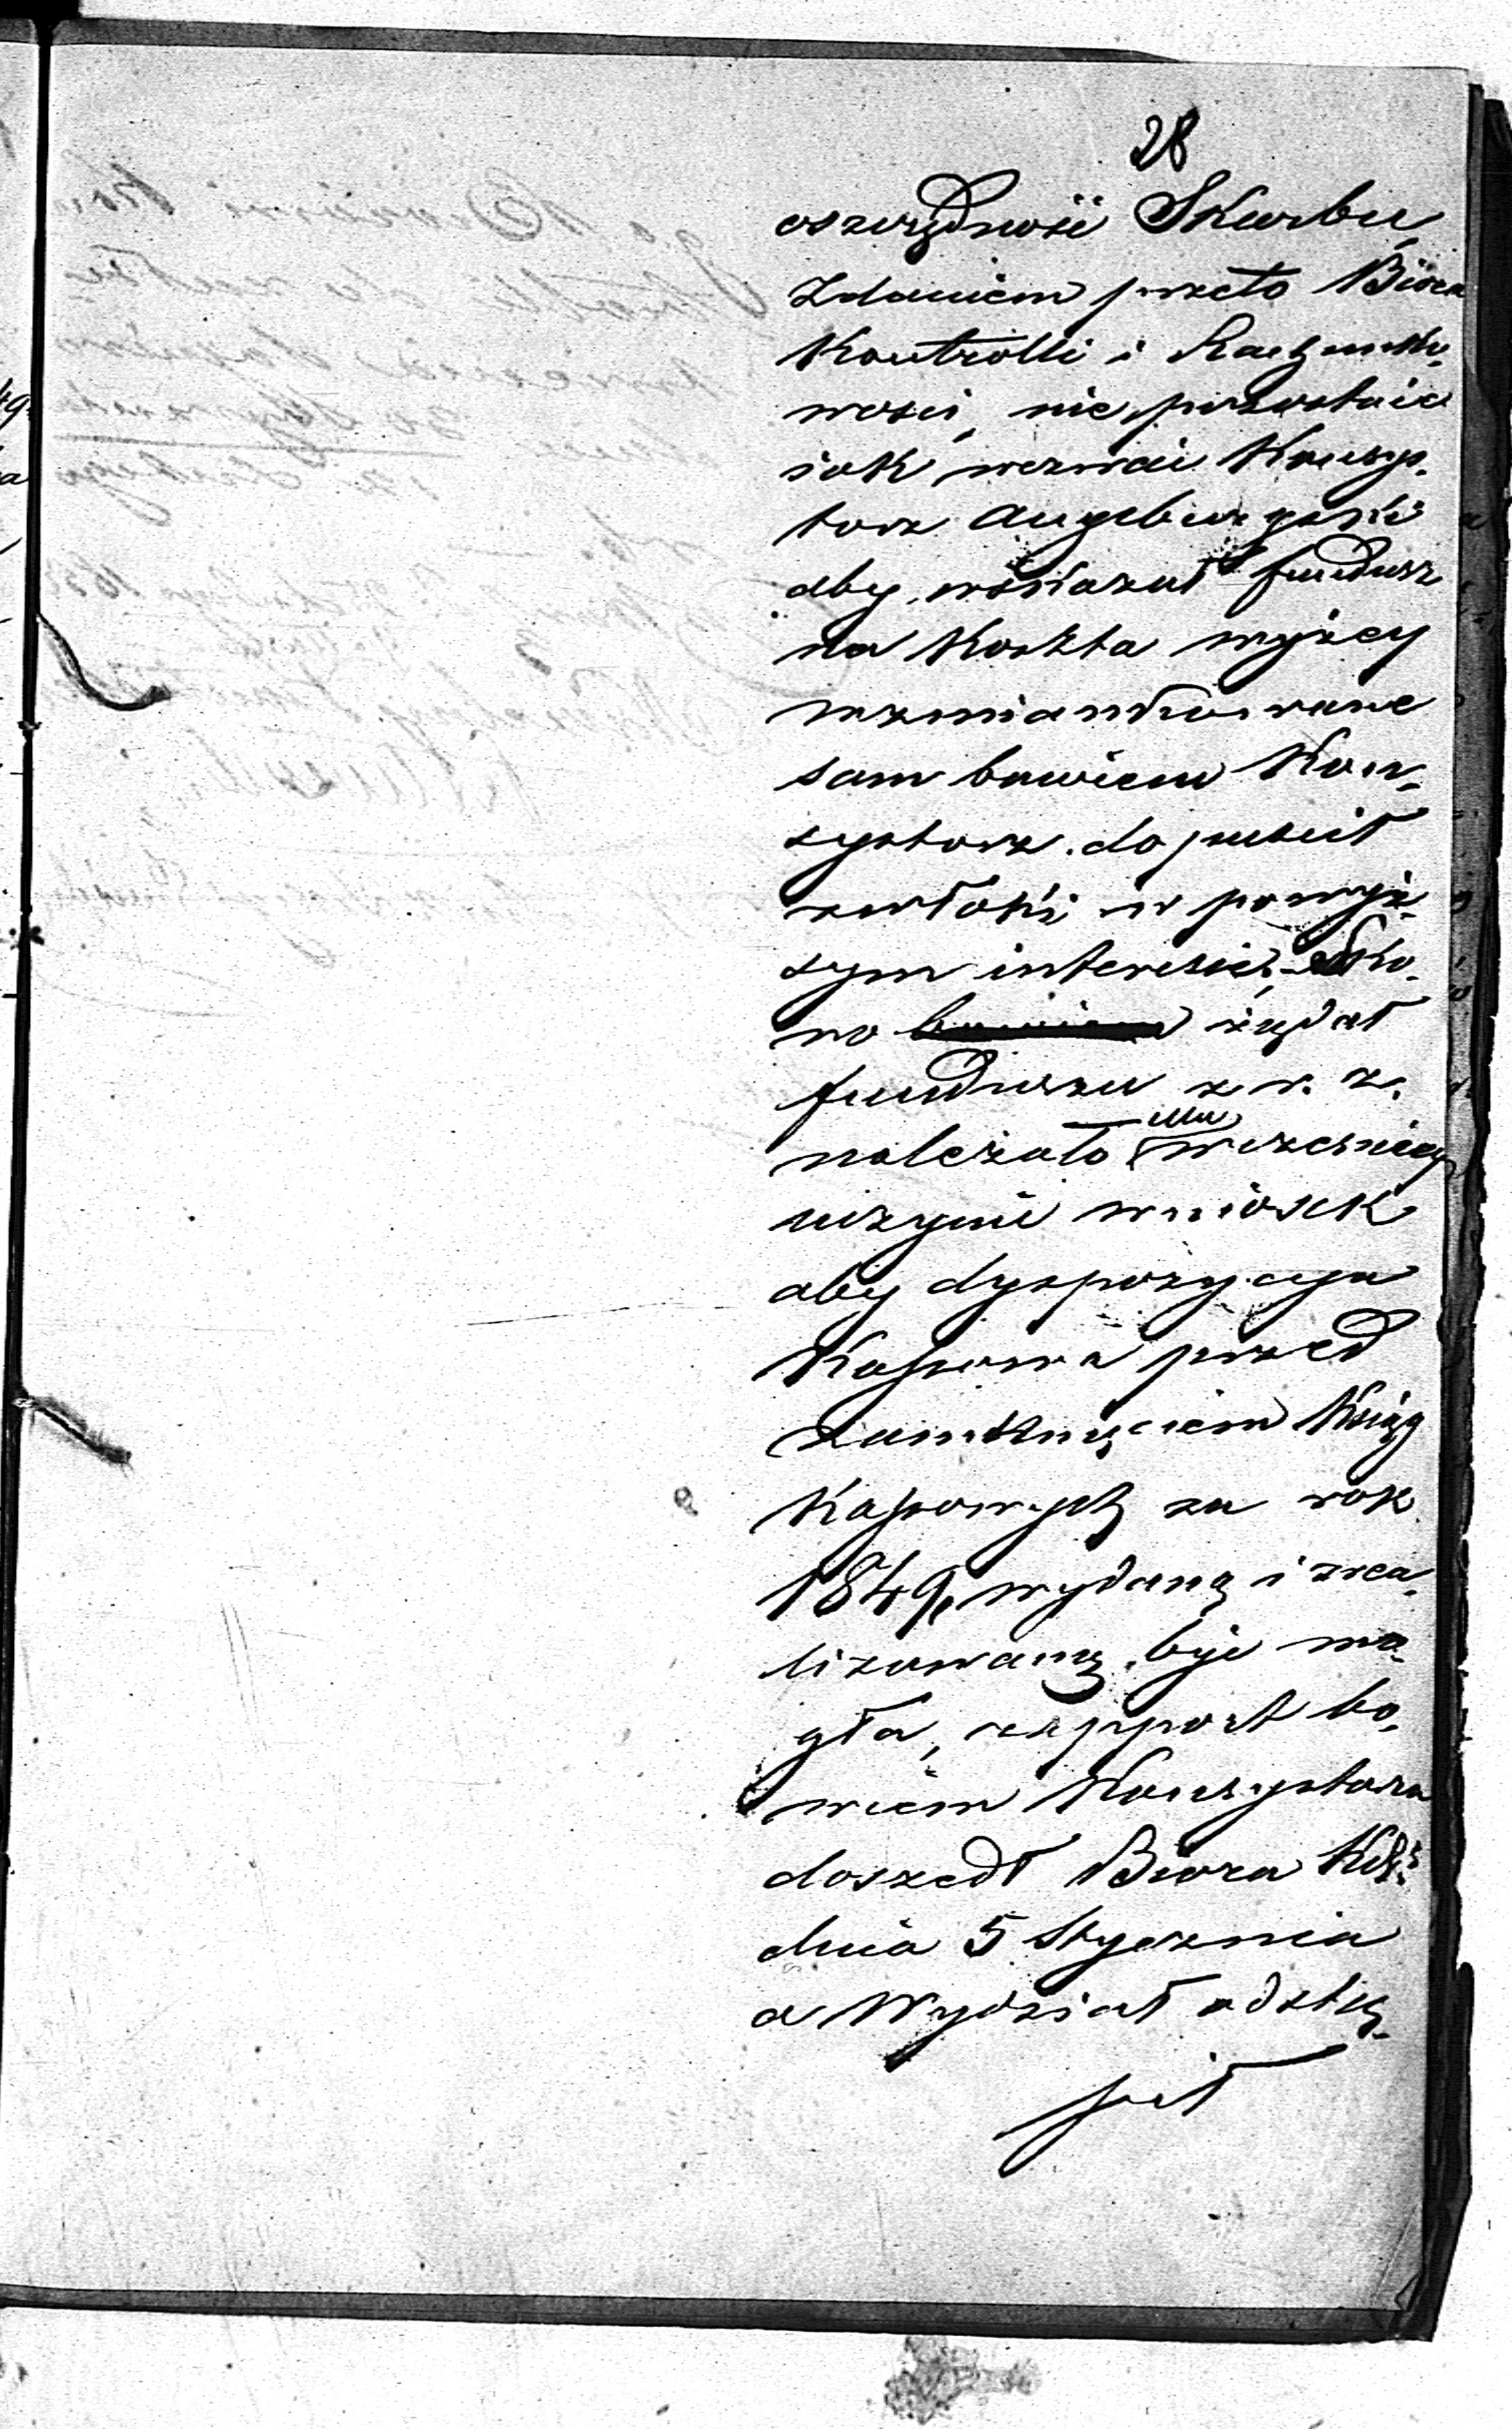 28
oszczędność Skarbu
Zdaniem przeto Biura
Kontrolli i Rachunko-
wości, nie pozostaie
iak wezwać Konsys-
torz Augsburgski
aby wskazał fundusz
na Koszta wyżey
wzmiankowane
sam bowiem Kon-
systorz dopuścił
zwłoki w powyż-
szym interesie, sko-
ro żądał
funduszu z r. z.
należało mu wcześniey
uczynić wniosek
aby dyspozycya
Kassowa przed
zamknięciem Ksiąg
Kassowych za rok
1849, wydaną i zrea-
lizowaną być mo-
gła, rapport bo-
wiem Konsystorza
doszedł Biura
dnia 5 Stycznia
a Wydział odstą-
pił